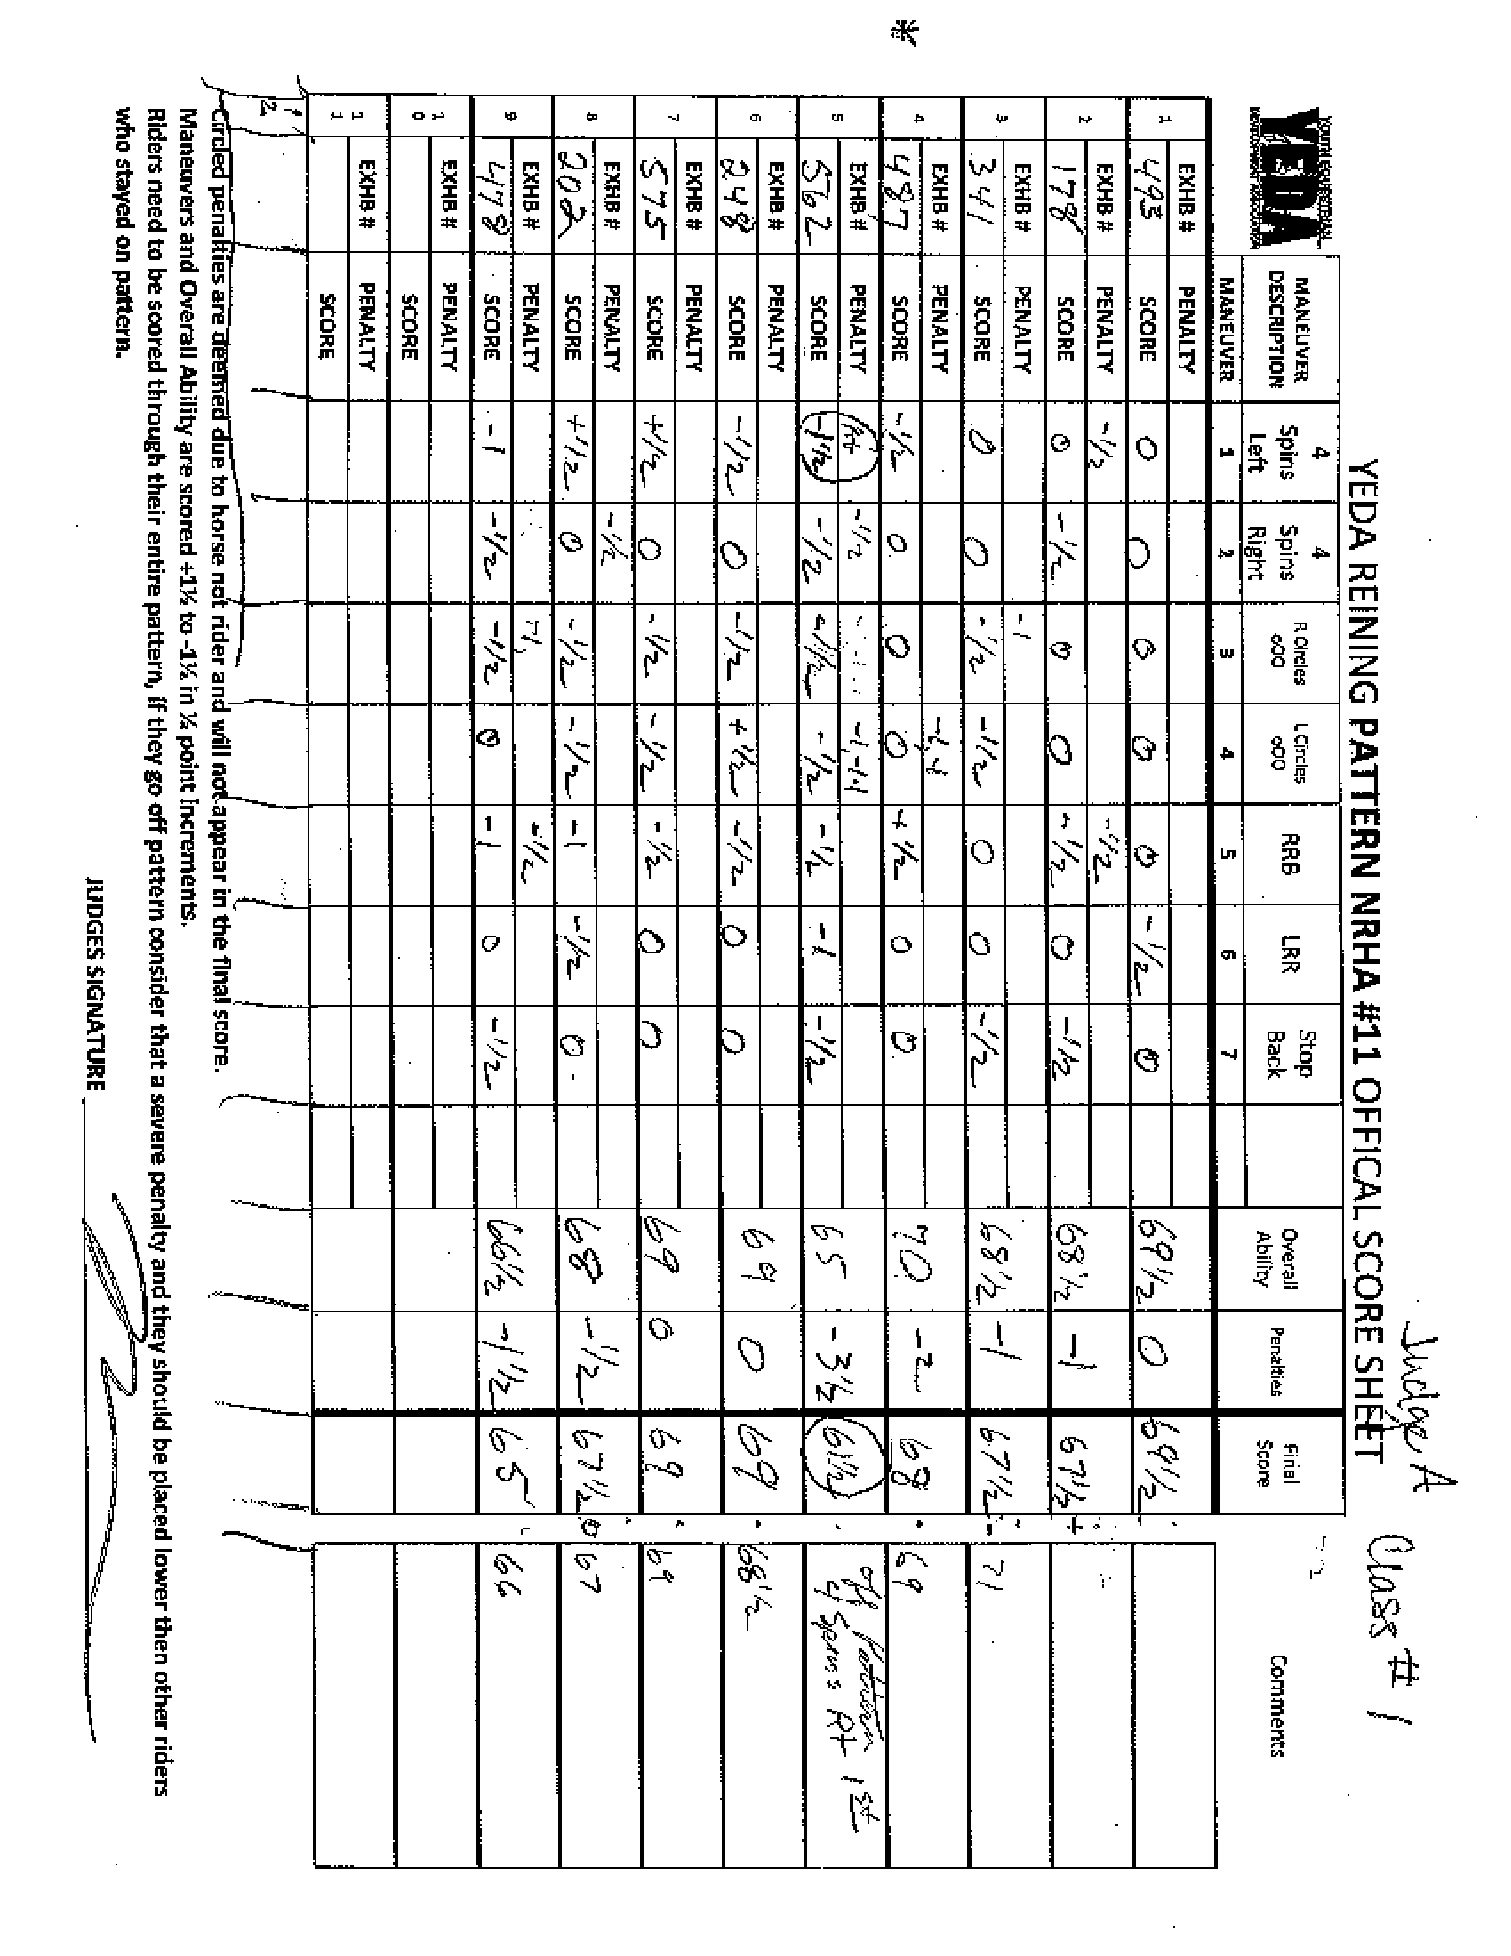 Judge A Class # 1
YEDA REINING PATTERN NRHA #11 OFFICAL SCORE SHEET
YOUTH EQUESTRIAN
YEDA
DEVELOPMENT ASSOCIATION
MANEUVER DESCRIPTION 4 Spins Left 4 Spins Right R Circles oOO L Circles oOO RRB LRR Stop Back Overall Ability Penalties Final Score Comments
MANEUVER 1 2 3 4 5 6 7
1 EXHB # PENALTY
493 SCORE 0 0 0 0 0 -1/2 0 69 1/2 0 69 1/2
2 EXHB # PENALTY -1/2 -1/2
178 SCORE 0 -1/2 0 0 -1/2 0 -1/2 68 1/2 -1 67 1/2 +
3 EXHB # PENALTY -1
341 SCORE 0 0 -1/2 -1/2 0 0 -1/2 68 1/2 -1 67 1/2 - 71
4 EXHB # PENALTY -1,-1
487 SCORE -1/2 0 0 0 +1/2 0 0 70 -2 68 69
5 EXHB # PENALTY -1/2 -1,-1,-1
562 SCORE -1 1/2 -1/2 -1/2 -1/2 -1/2 -1 -1/2 65 -3 1/2 61 1/2 off Pattern
4 Spins Rt 1st
6 EXHB # PENALTY
248 SCORE -1/2 0 -1/2 +1/2 -1/2 0 0 69 0 69 68 1/2
7 EXHB # PENALTY
575 SCORE +1/2 0 -1/2 -1/2 -1/2 0 0 69 0 69 69
8 EXHB # PENALTY -1/2
202 SCORE +1/2 0 -1/2 -1/2 -1 -1/2 0 68 -1/2 67 1/2 67
9 EXHB # PENALTY -1 -1/2
478 SCORE -1 -1/2 -1/2 0 -1 0 -1/2 66 1/2 -1 1/2 65 66
10 EXHB # PENALTY
SCORE
11 EXHB # PENALTY
SCORE
Circled penalties are deemed due to horse not rider and will not appear in the final score.
Maneuvers and Overall Ability are scored +1½ to -1½ in ½ point increments.
Riders need to be scored through their entire pattern, if they go off pattern consider that a severe penalty and they should be placed lower then other riders
who stayed on pattern.
JUDGES SIGNATURE